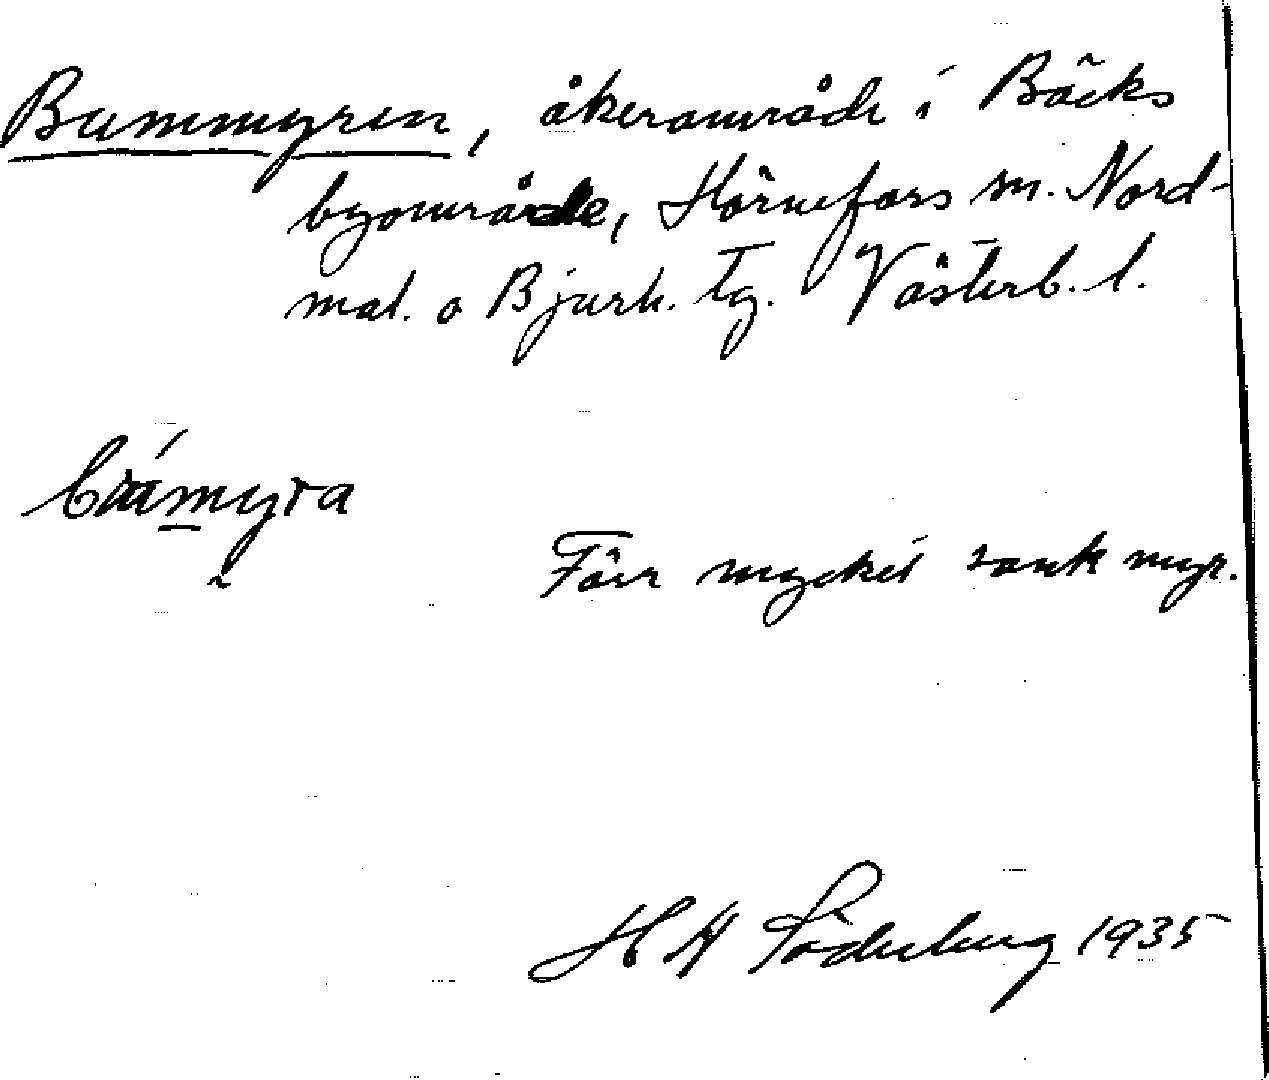 Bummyren, åkerområde i Bäcks
byområde, Hörnefors sn. Nord-
mal. o Bjurh. tg. Västerb. l.
Förr mycket sank myr.
H A Söderberg 1935